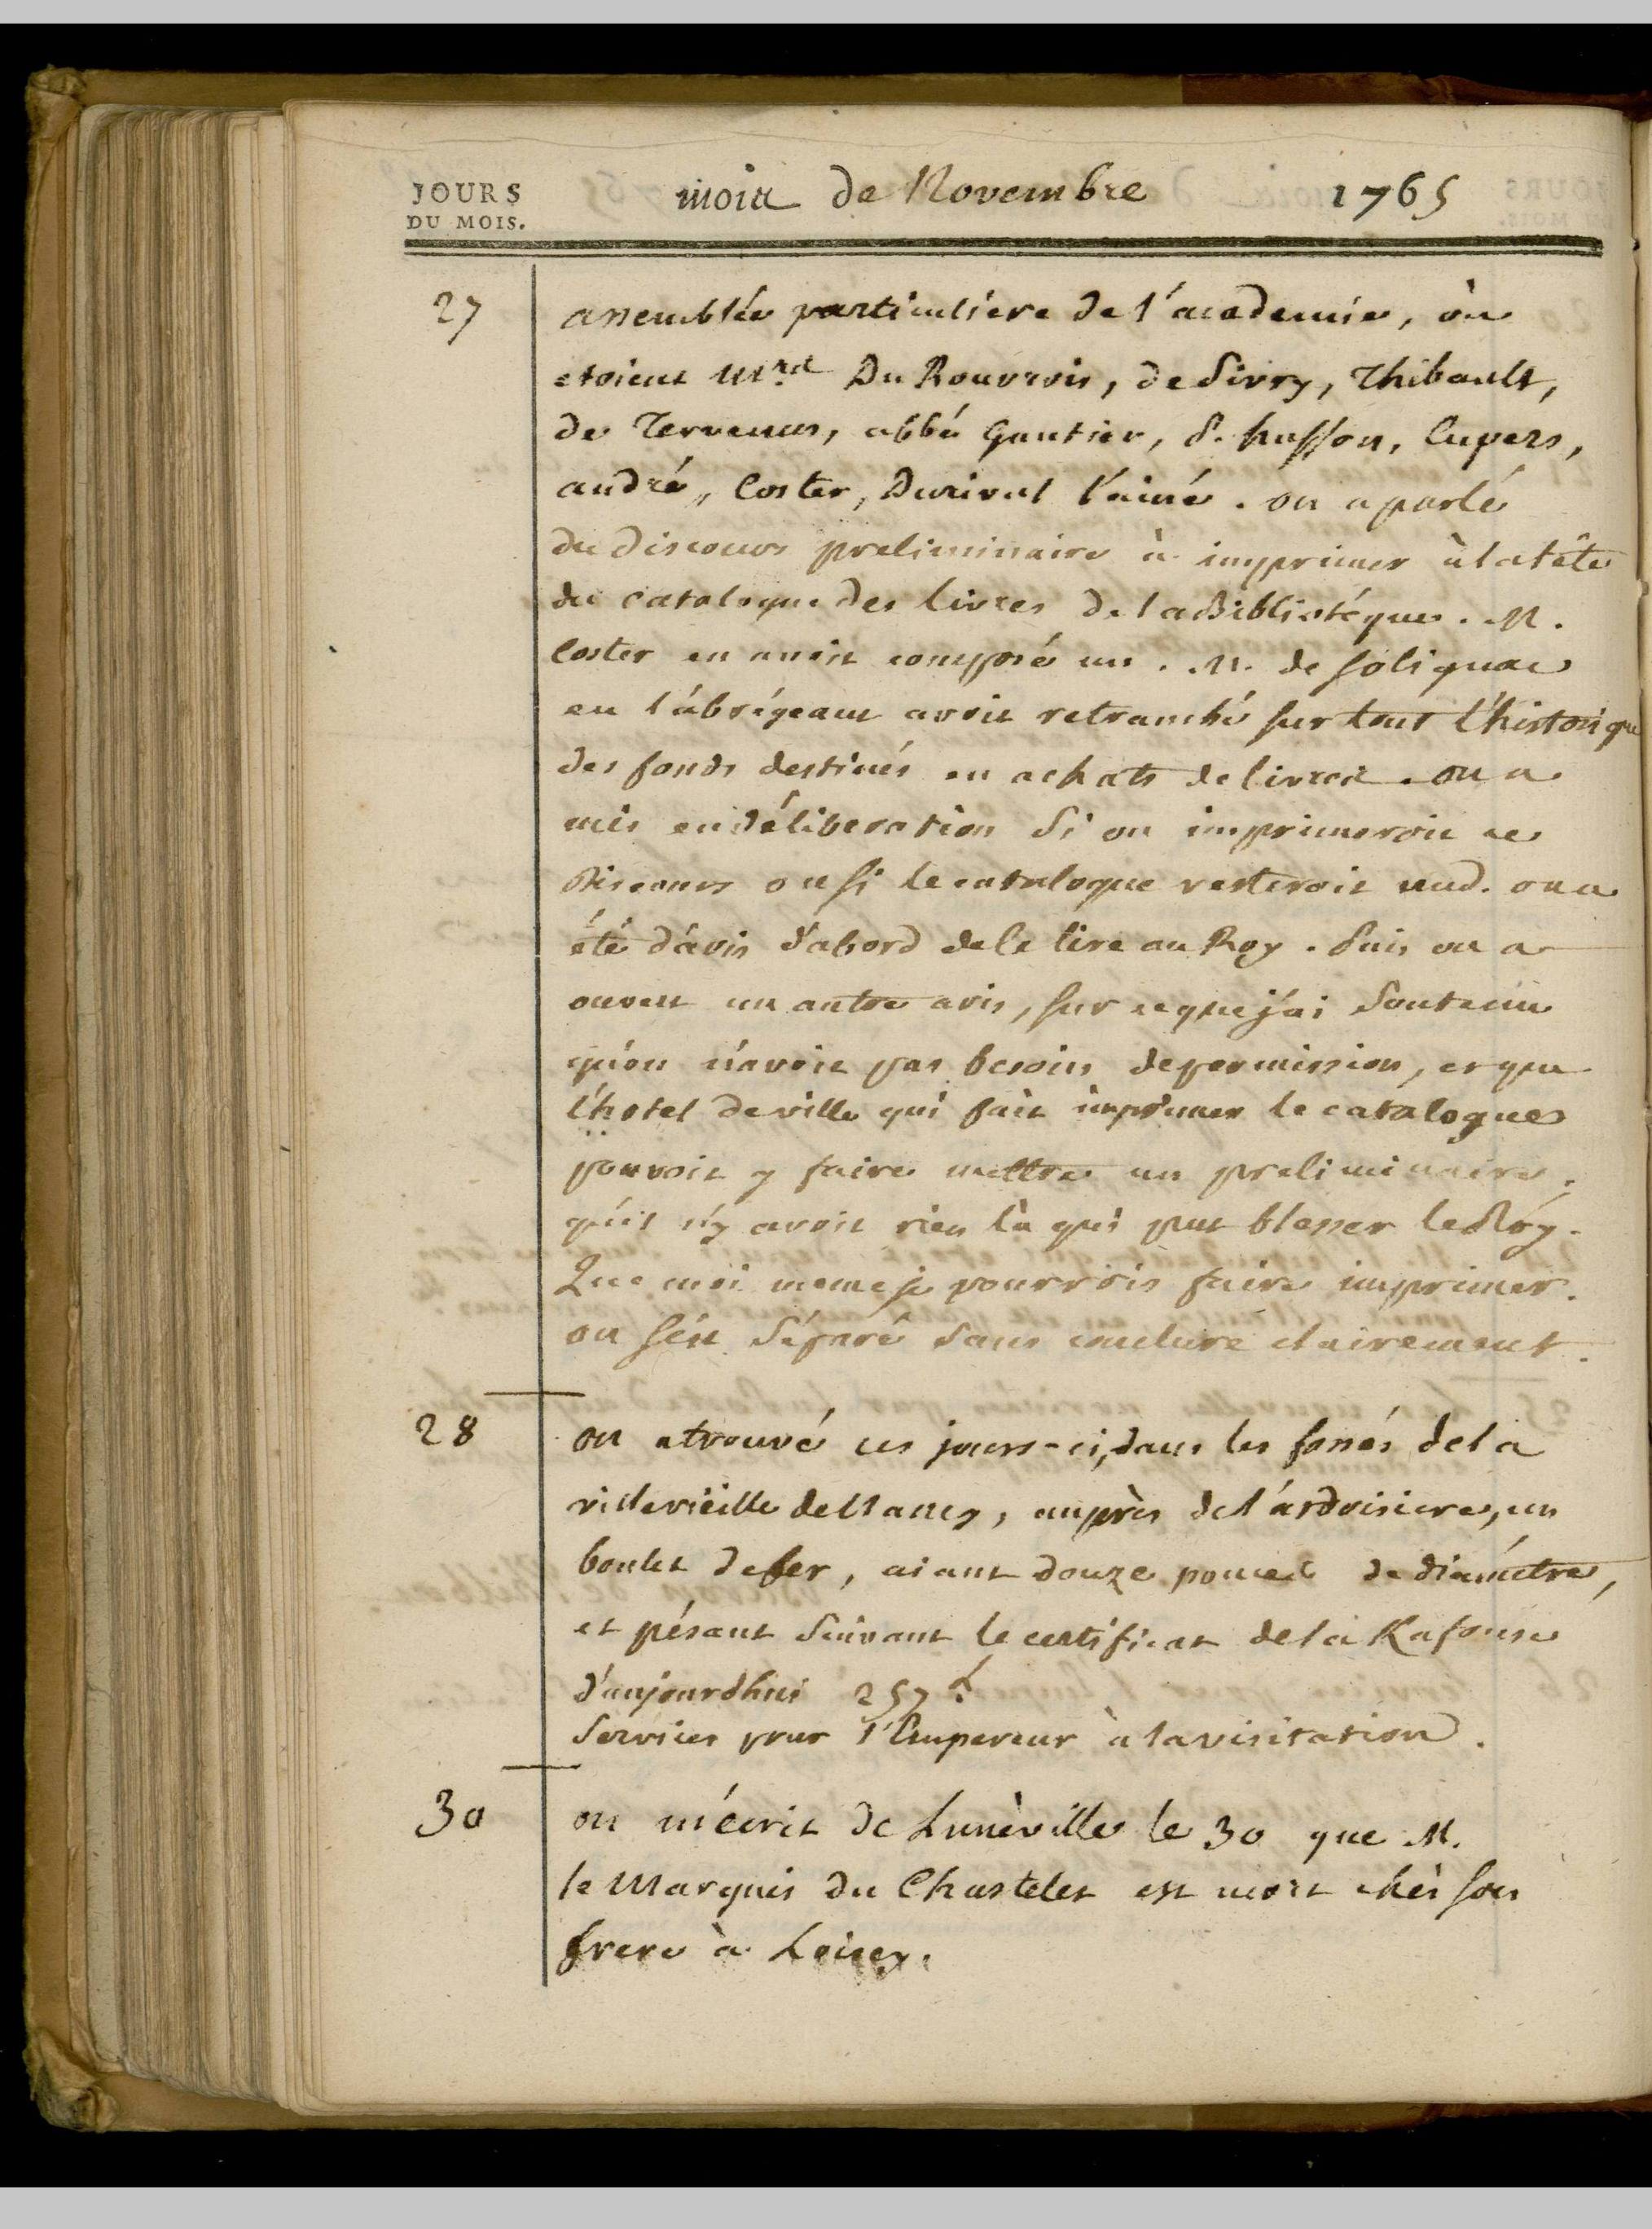 JOURS
DU MOIS.
mois de Novembre 1765
27
assemblée particuliére de l'academie, où
etoient Mrs. Du Rouvrois, de Sivry, Thibault,
de Tervenus, abbé Gautier, P. husson, Cupers,
andré, Coster, Durival l'ainé. on a parlé
du discours preliminaire à imprimer à la tête
du catalogue des livres de la Bibliotéque. M.
Coster en avoit composé un. M. de solignac
en l'abrégeant avoit retranché sur tout l'historique
des fonds destinés en achats de livres. on a
mis en déliberation si on imprimeroit ce
discours ou si le catalogue resteroit nud. on a
été d'avis d'abord de le lire au Roy. Puis on a
ouvert un autre avis, sur ce que j'ai soutenu
qu'on n'avoit pas besoin de permission, et que
l'hotel de ville qui fait imprimer le catalogue
pouvoit y faire mettre un preliminaire.
qu'il n'y avoit rien là qui put blesser le Roy.
Que moi meme je pourrois faire imprimer.
on s'est séparé sans conclure clairement.
28
on a trouvé ces jours-ci, dans les fossés de la
ville vieille de Nancy, auprès de l'ardoisiere, un
boulet de fer, aiant douze pouces de diamétre,
et pésant suivant le certificat de la Kafouse
d'aujourdhui 257 l.
Services pour l'Empereur à la visitation.
30
on m'écrit de Lunéville le 30 que M.
le Marquis du Chastelet est mort chès son
frere à Loisey.